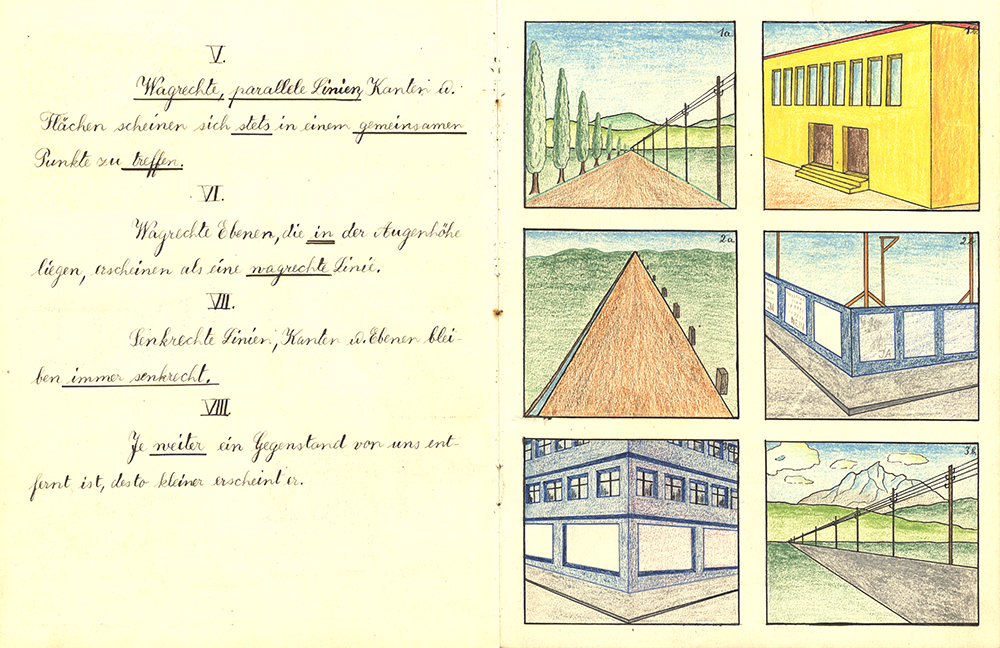 V.
Wagrechte, parallele Linien, Kanten u.
Flächen scheinen sich stets in einem gemeinsamen
Punkte zu treffen.
VI.
Wagrechte Ebenen, die in der Augenhöhe
liegen, erscheinen als eine wagrechte Linie.
VII.
Senkrechte Linien, Kanten u. Ebenen blei-
ben immer senkrecht.
VIII.
Je weiter ein Gegenstand von uns ent-
fernt ist, desto kleiner erscheint er.
1a
2a
2b
3b